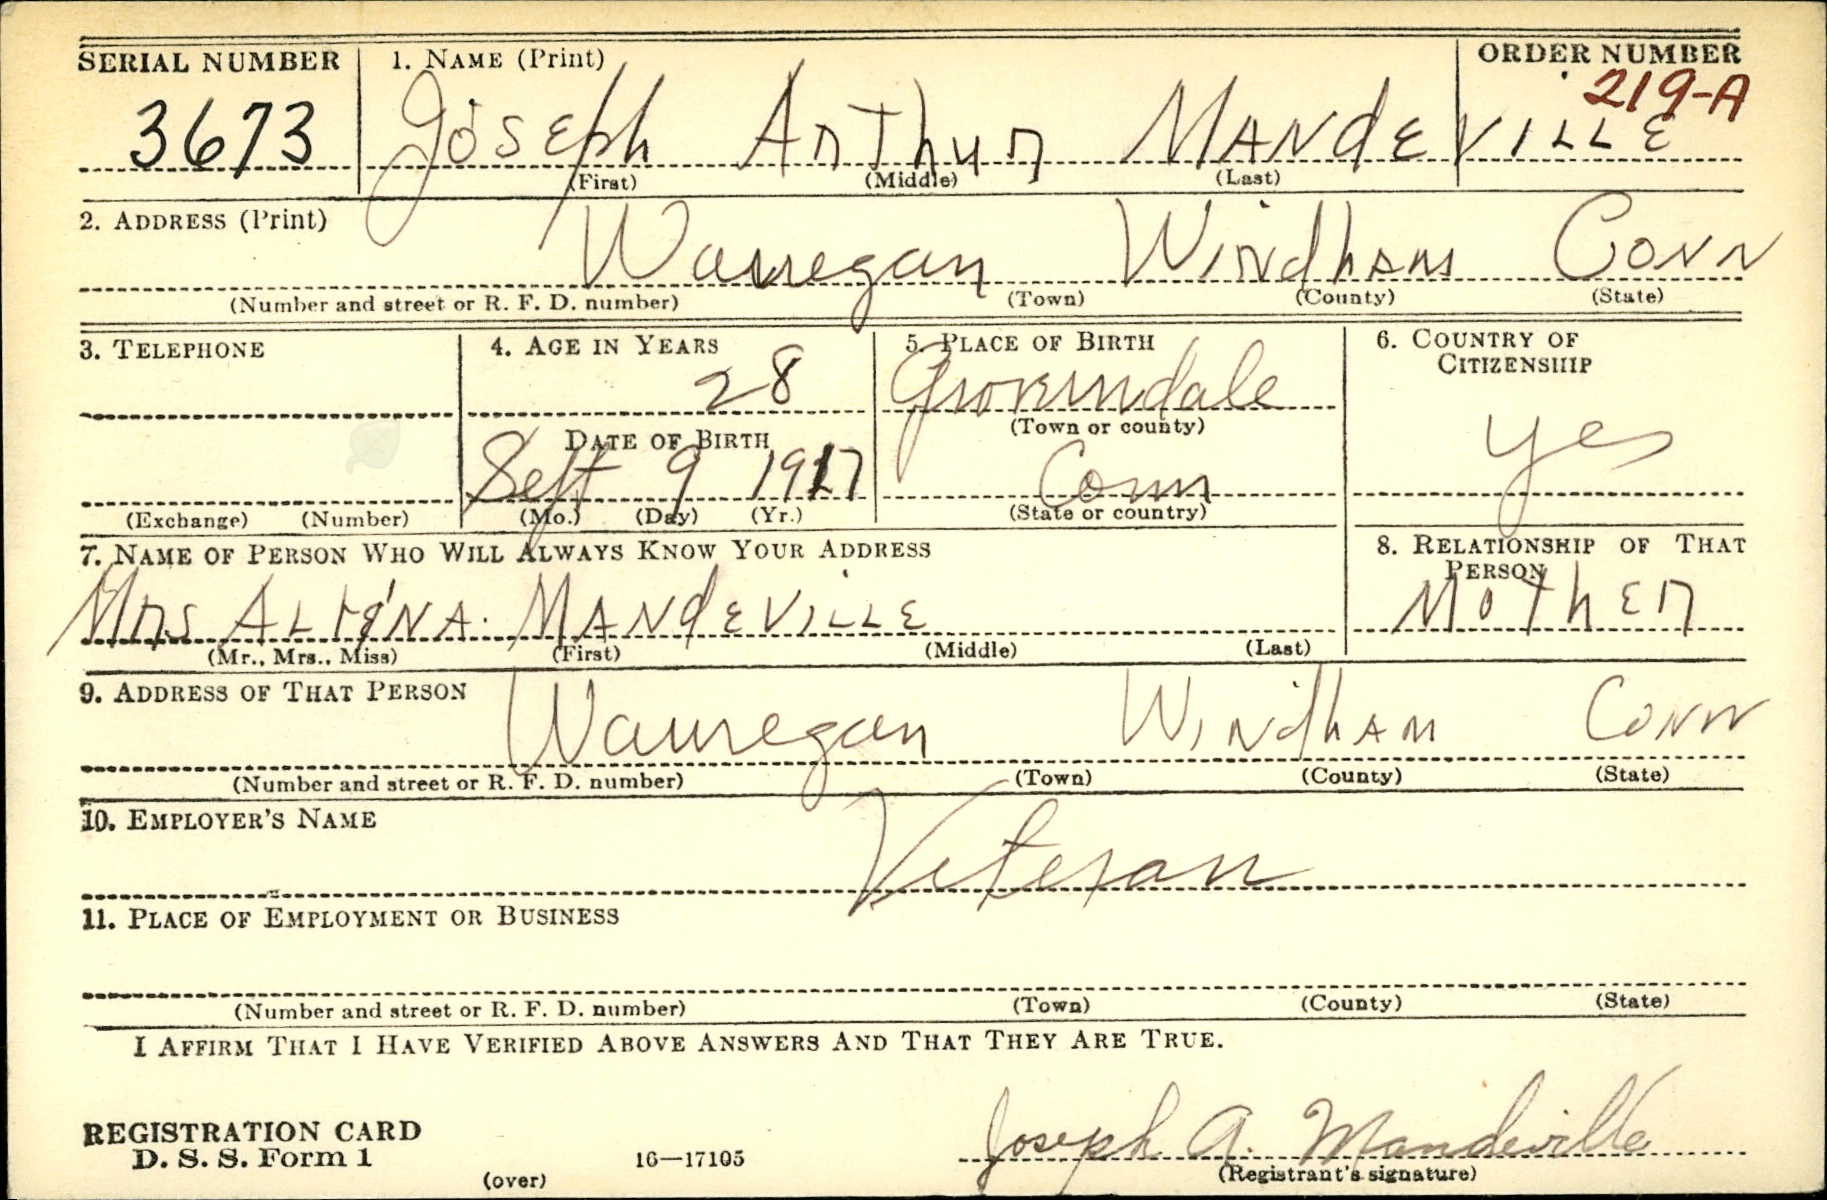 SERIAL NUMBER 1. NAME (Print) ORDER NUMBER
219-A
3673 Joseph Arthur MANdEVILLE
(First) (Middle) (Last)
2. ADDRESS (Print)
Wauregan Windham Conn
(Number and street or R. F. D. number) (Town) (County) (State)
3. TELEPHONE 4. AGE IN YEARS 5. PLACE OF BIRTH 6. COUNTRY OF CITIZENSHIP
28 Grovendale
(Town or county)
DATE OF BIRTH yes
Sept 9 1917 Conn
(Exchange) (Number) (Mo.) (Day) (Yr.) (State or country)
7. NAME OF PERSON WHO WILL ALWAYS KNOW YOUR ADDRESS 8. RELATIONSHIP OF THAT PERSON
Mrs MANdEVILLE MothER
(Mr., Mrs., Miss) (First) (Middle) (Last)
9. ADDRESS OF THAT PERSON
Wauregan Windham Conn
(Number and street or R. F. D. number) (Town) (County) (State)
10. EMPLOYER'S NAME
Veteran
11. PLACE OF EMPLOYMENT OR BUSINESS
(Number and street or R. F. D. number) (Town) (County) (State)
I AFFIRM THAT I HAVE VERIFIED ABOVE ANSWERS AND THAT THEY ARE TRUE.
REGISTRATION CARD
D. S. S. Form 1 16—17105 Joseph A. Mandeville
(over) (Registrant's signature)